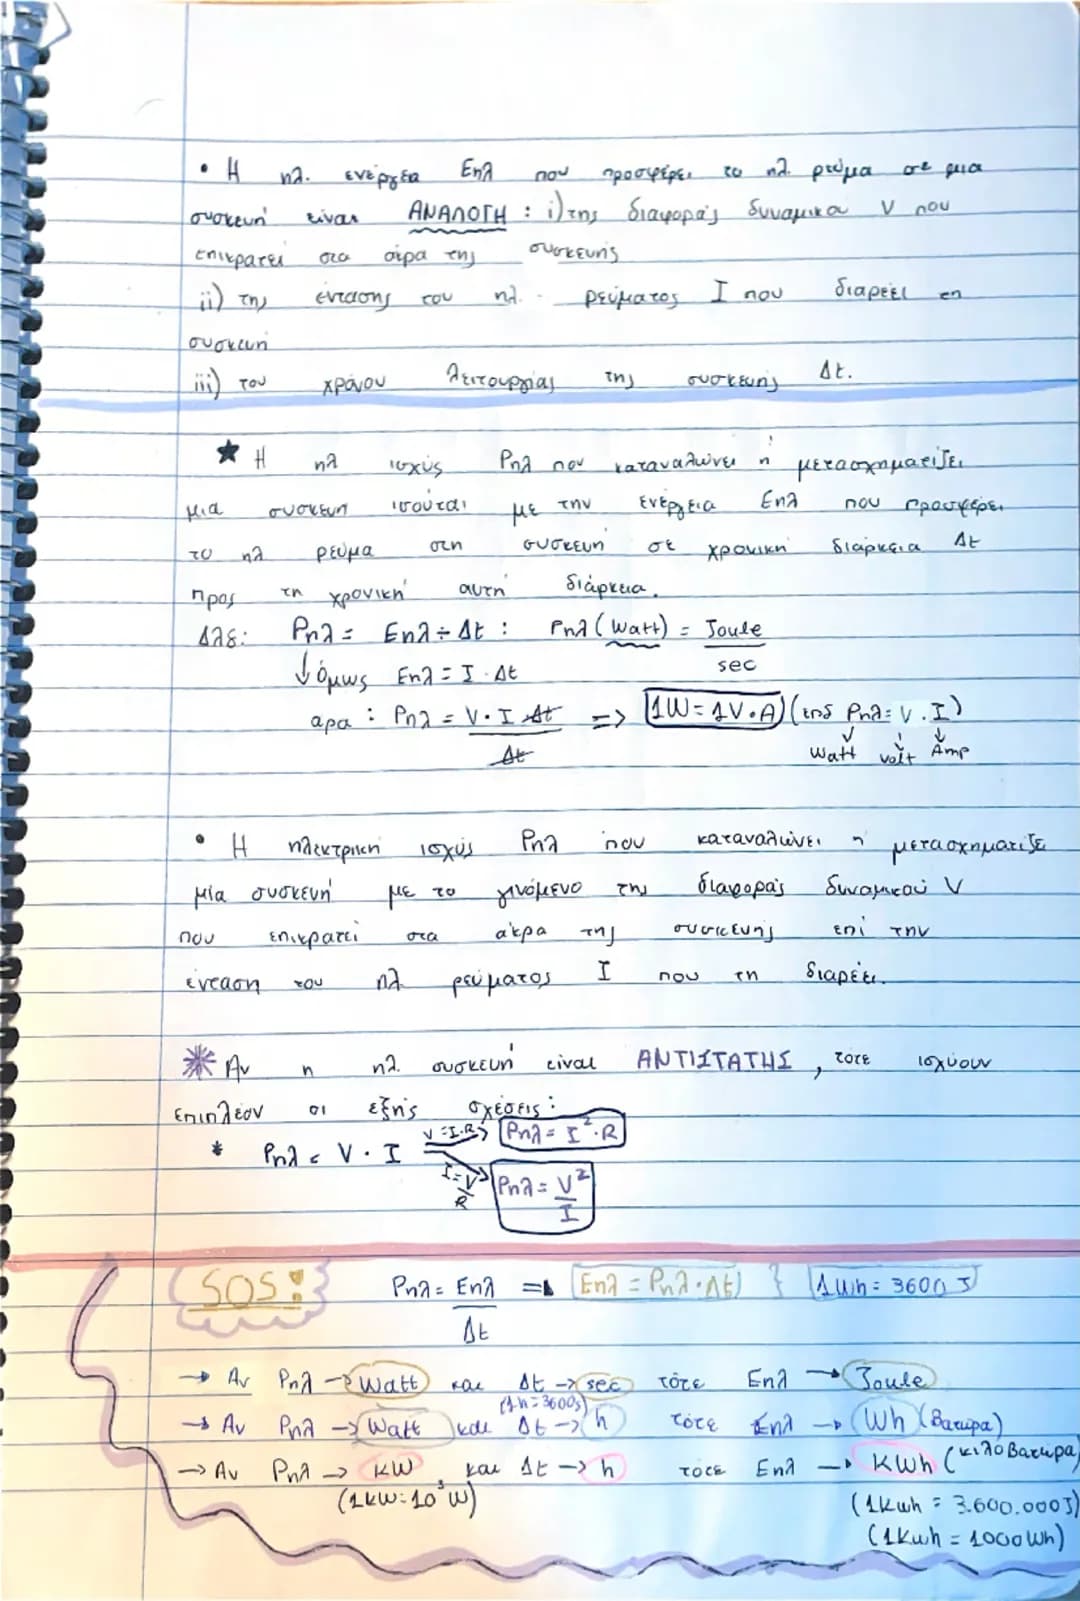 • Η ηλ. ενέργεια Εηλ που προσφέρει το ηλ. ρεύμα σε μια
συσκευή είναι ΑΝΑΛΟΓΗ : i) της διαφοράς δυναμικού V που
επικρατεί στα άκρα της συσκευής
ii) της έντασης του ηλ. ρεύματος I που διαρέει τη
συσκευή
iii) του χρόνου λειτουργίας της συσκευής Δt.
★ Η ηλ ισχύς Pηλ που καταναλώνει ή μετασχηματίζει
μια συσκευή ισούται με την ενέργεια Εηλ που προσφέρει
το ηλ ρεύμα στη συσκευή σε χρονική διάρκεια Δt
προς τη χρονική αυτή διάρκεια.
Δλδ: Pηλ = Εηλ ÷ Δt : Pηλ (Watt) = Joule
sec
↓ όμως Εηλ = I · Δt
αρα : Pηλ = V · I Δt => 1W = 1V·A (Pηλ = V . I)
Δt Watt volt Amp
• Η ηλεκτρική ισχύς Pηλ που καταναλώνει ή μετασχηματιζε
μία συσκευή με το γινόμενο της διαφοράς δυναμικού V
που επικρατεί στα άκρα της συσκευής επί την
ένταση του ηλ ρεύματος I που τη διαρέει.
* Αν η ηλ. συσκευή είναι ΑΝΤΙΣΤΑΤΗΣ, τότε ισχύουν
επιπλέον οι εξής σχέσεις :
* Pηλ = V · I V = I.R Pηλ = I²·R
I = V/R Pηλ = V²/I
SOS! Pηλ = Εηλ => Εηλ = Pηλ · Δt } 1Wh = 3600 J
Δt
→ Αν Pηλ → Watt και Δt → sec τότε Εηλ → Joule
(1h = 3600s)
→ Αν Pηλ → Watt και Δt → h τότε Εηλ → Wh (Βατώρα)
→ Αν Pηλ → KW και Δt → h τότε Εηλ → KWh (κιλοβατώρα)
(1kW = 10³ W) (1Kwh = 3.600.000J)
(1Kwh = 1000Wh)